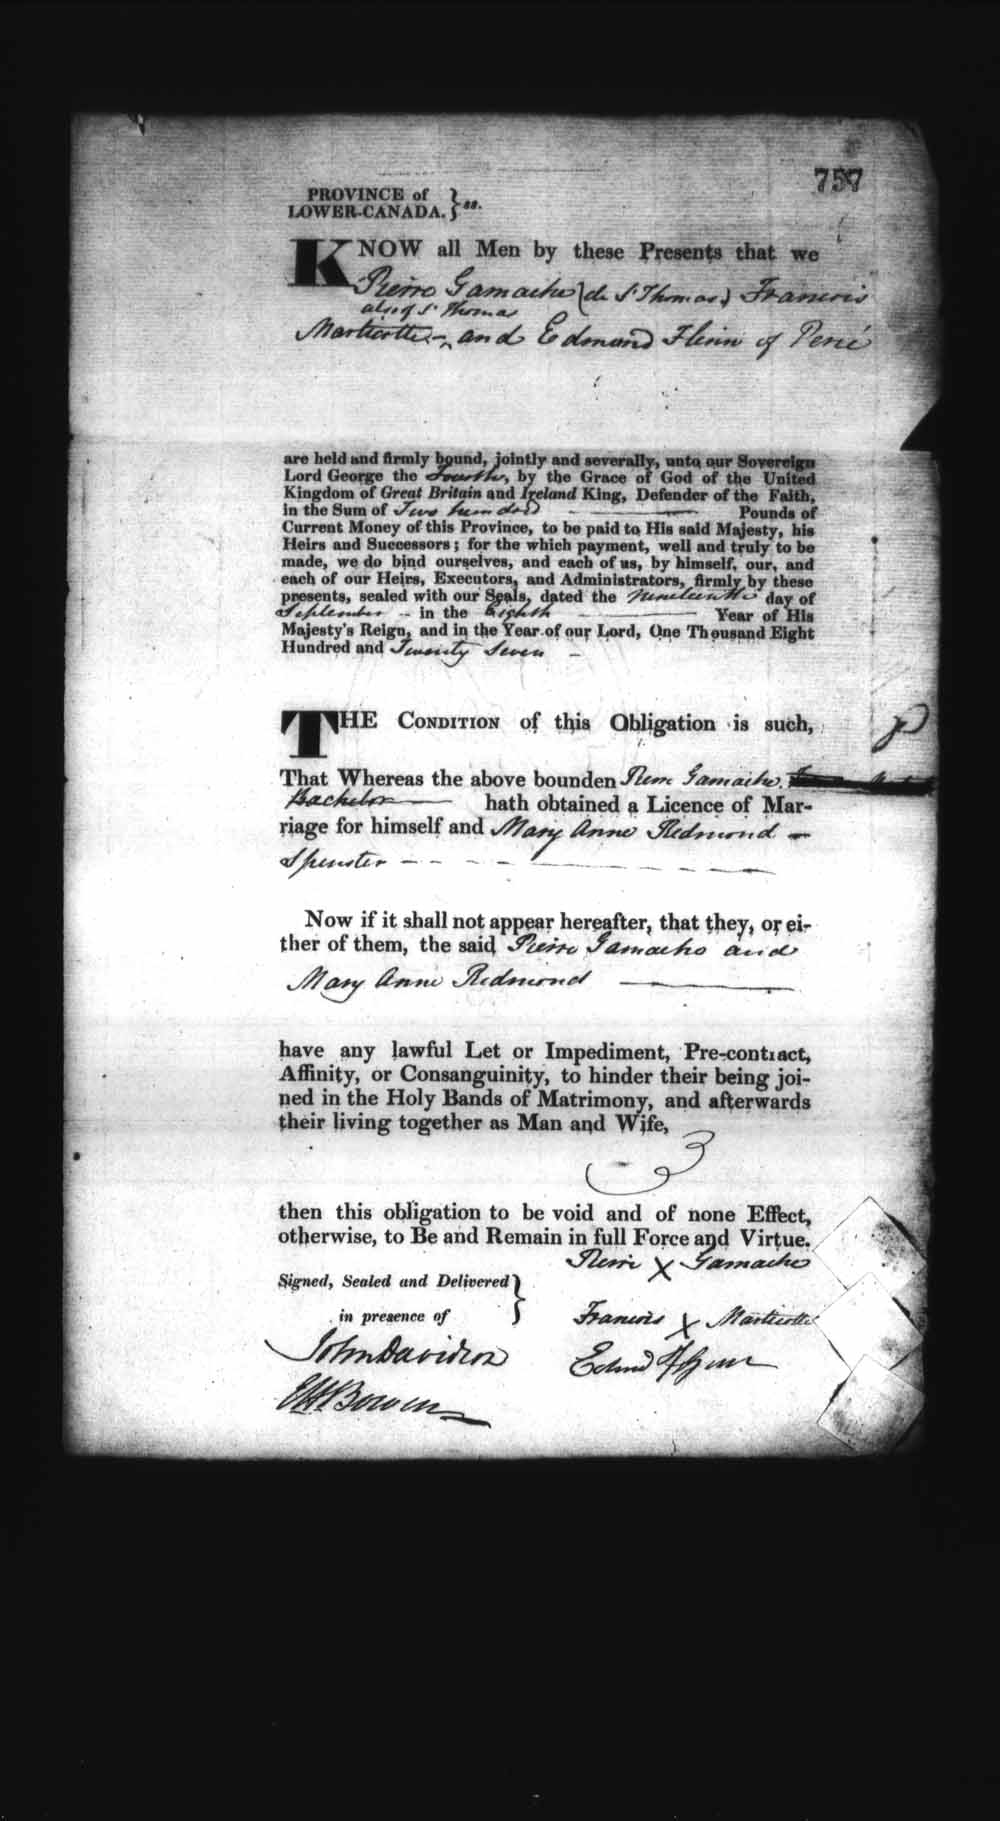 757
PROVINCE of
LOWER-CANADA. } ss.
KNOW all Men by these Presents that we
Pierre Gamache (de St Thomas) Francois
also of St Thomas
Marticotte - and Edmund Flinn of Percé
are held and firmly bound, jointly and severally, unto our Sovereign
Lord George the Fourth, by the Grace of God of the United
Kingdom of Great Britain and Ireland King, Defender of the Faith,
in the Sum of Two hundred Pounds of
Current Money of this Province, to be paid to His said Majesty, his
Heirs and Successors; for the which payment, well and truly to be
made, we do bind ourselves, and each of us, by himself, our, and
each of our Heirs, Executors, and Administrators, firmly by these
presents, sealed with our Seals, dated the nineteenth day of
September in the Eighth Year of His
Majesty's Reign, and in the Year of our Lord, One Thousand Eight
Hundred and Twenty Seven
THE CONDITION of this Obligation is such,
That Whereas the above bounden Pierre Gamache
Bachelor hath obtained a Licence of Mar-
riage for himself and Mary Anne Redmond
Spinster
Now if it shall not appear hereafter, that they, or ei-
ther of them, the said Pierre Gamache and
Mary Anne Redmond
have any lawful Let or Impediment, Pre-contract,
Affinity, or Consanguinity, to hinder their being joi-
ned in the Holy Bands of Matrimony, and afterwards
their living together as Man and Wife,
then this obligation to be void and of none Effect,
otherwise, to Be and Remain in full Force and Virtue.
Pierre X Gamache
Signed, Sealed and Delivered }
in presence of
Francois X Marticotte
John Davidson
Edmd Flynn
Bowen